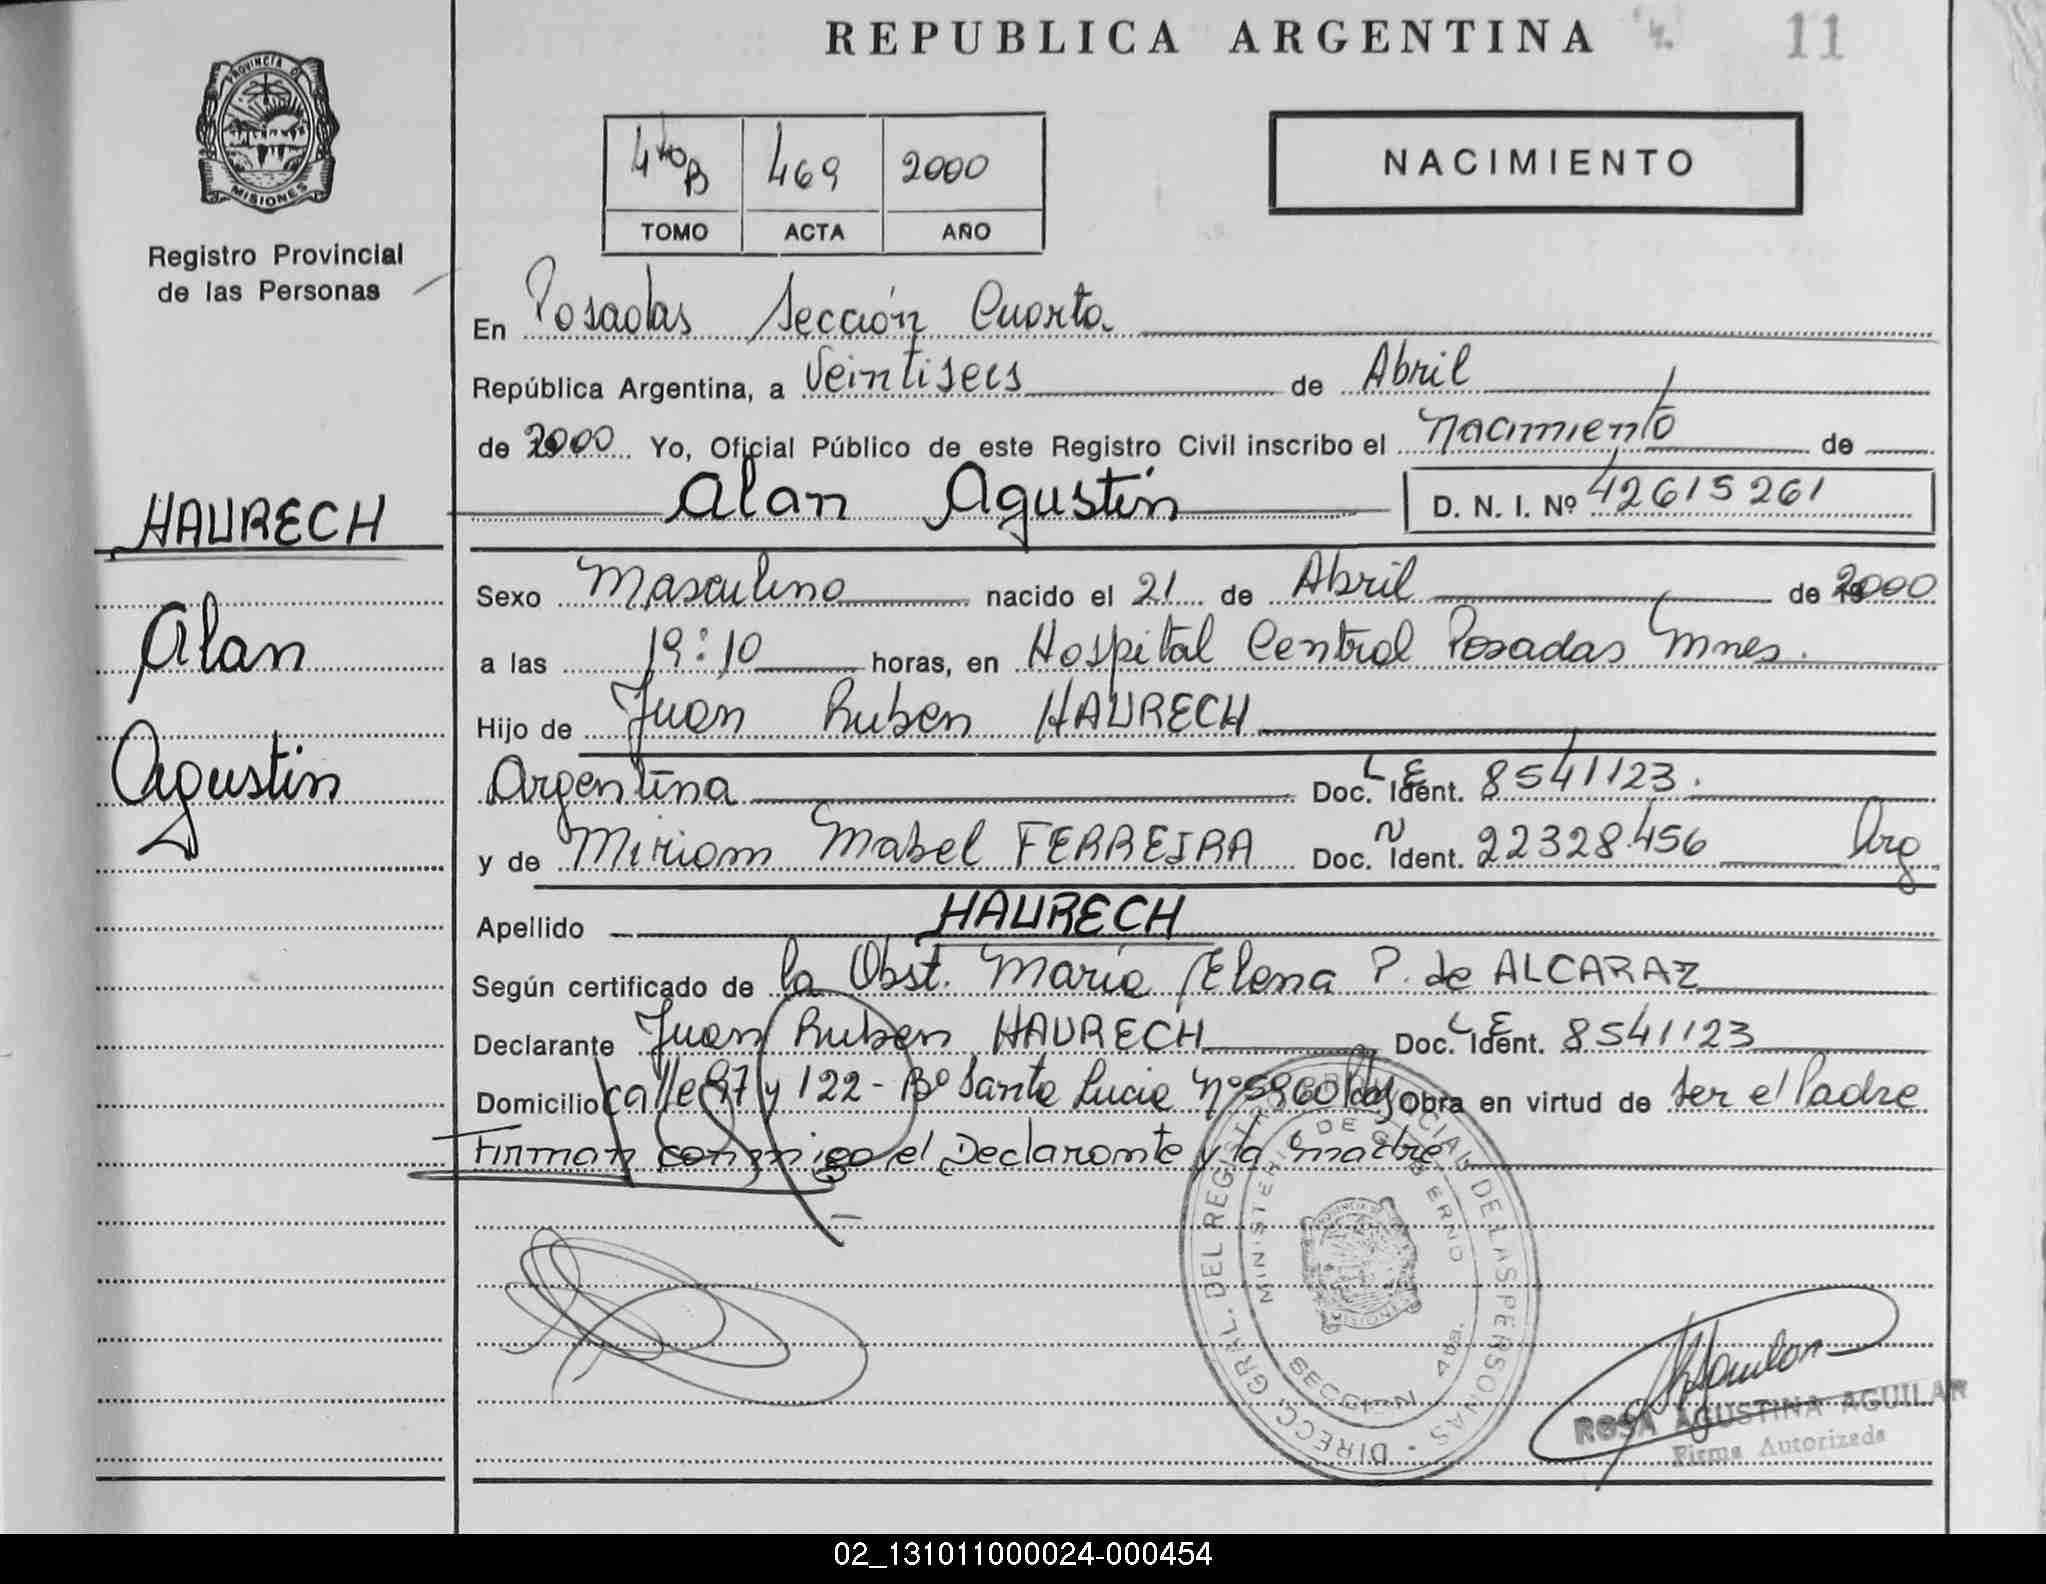 REPUBLICA ARGENTINA
11
PROVINCIA DE
MISIONES
Registro Provincial
de las Personas
4to B 469 2000
TOMO ACTA AÑO
NACIMIENTO
En Posadas Sección Cuarta
República Argentina, a Veintiseis de Abril
de 2000 Yo, Oficial Público de este Registro Civil inscribo el Nacimiento de
Alan Agustin D. N. I. Nº 42615261
HAURECH
Alan
Agustin
Sexo Masculino nacido el 21 de Abril de 2000
a las 19:10 horas, en Hospital Central Posadas Mnes.
Hijo de Juan Ruben HAURECH
Argentina Doc. Ident. L E 8541123.
y de Miriam Mabel FERREIRA Doc. Ident. 22328456 Arg
Apellido HAURECH
Según certificado de la Obst. Maria Elena P. de ALCARAZ
Declarante Juan Ruben HAURECH Doc. Ident. L E 8541123
Domicilio calle 97 y 122 - Bº Santa Lucia Nº 5960 Obra en virtud de ser el Padre
Firman conmigo el Declarante y la madre
DIRECC. GRAL. DEL REGISTRO PROVINCIAL DE LAS PERSONAS
MINISTERIO DE GOBIERNO
SECCION 4ta.
ROSA AGUSTINA AGUILAR
Firma Autorizada
02_131011000024-000454